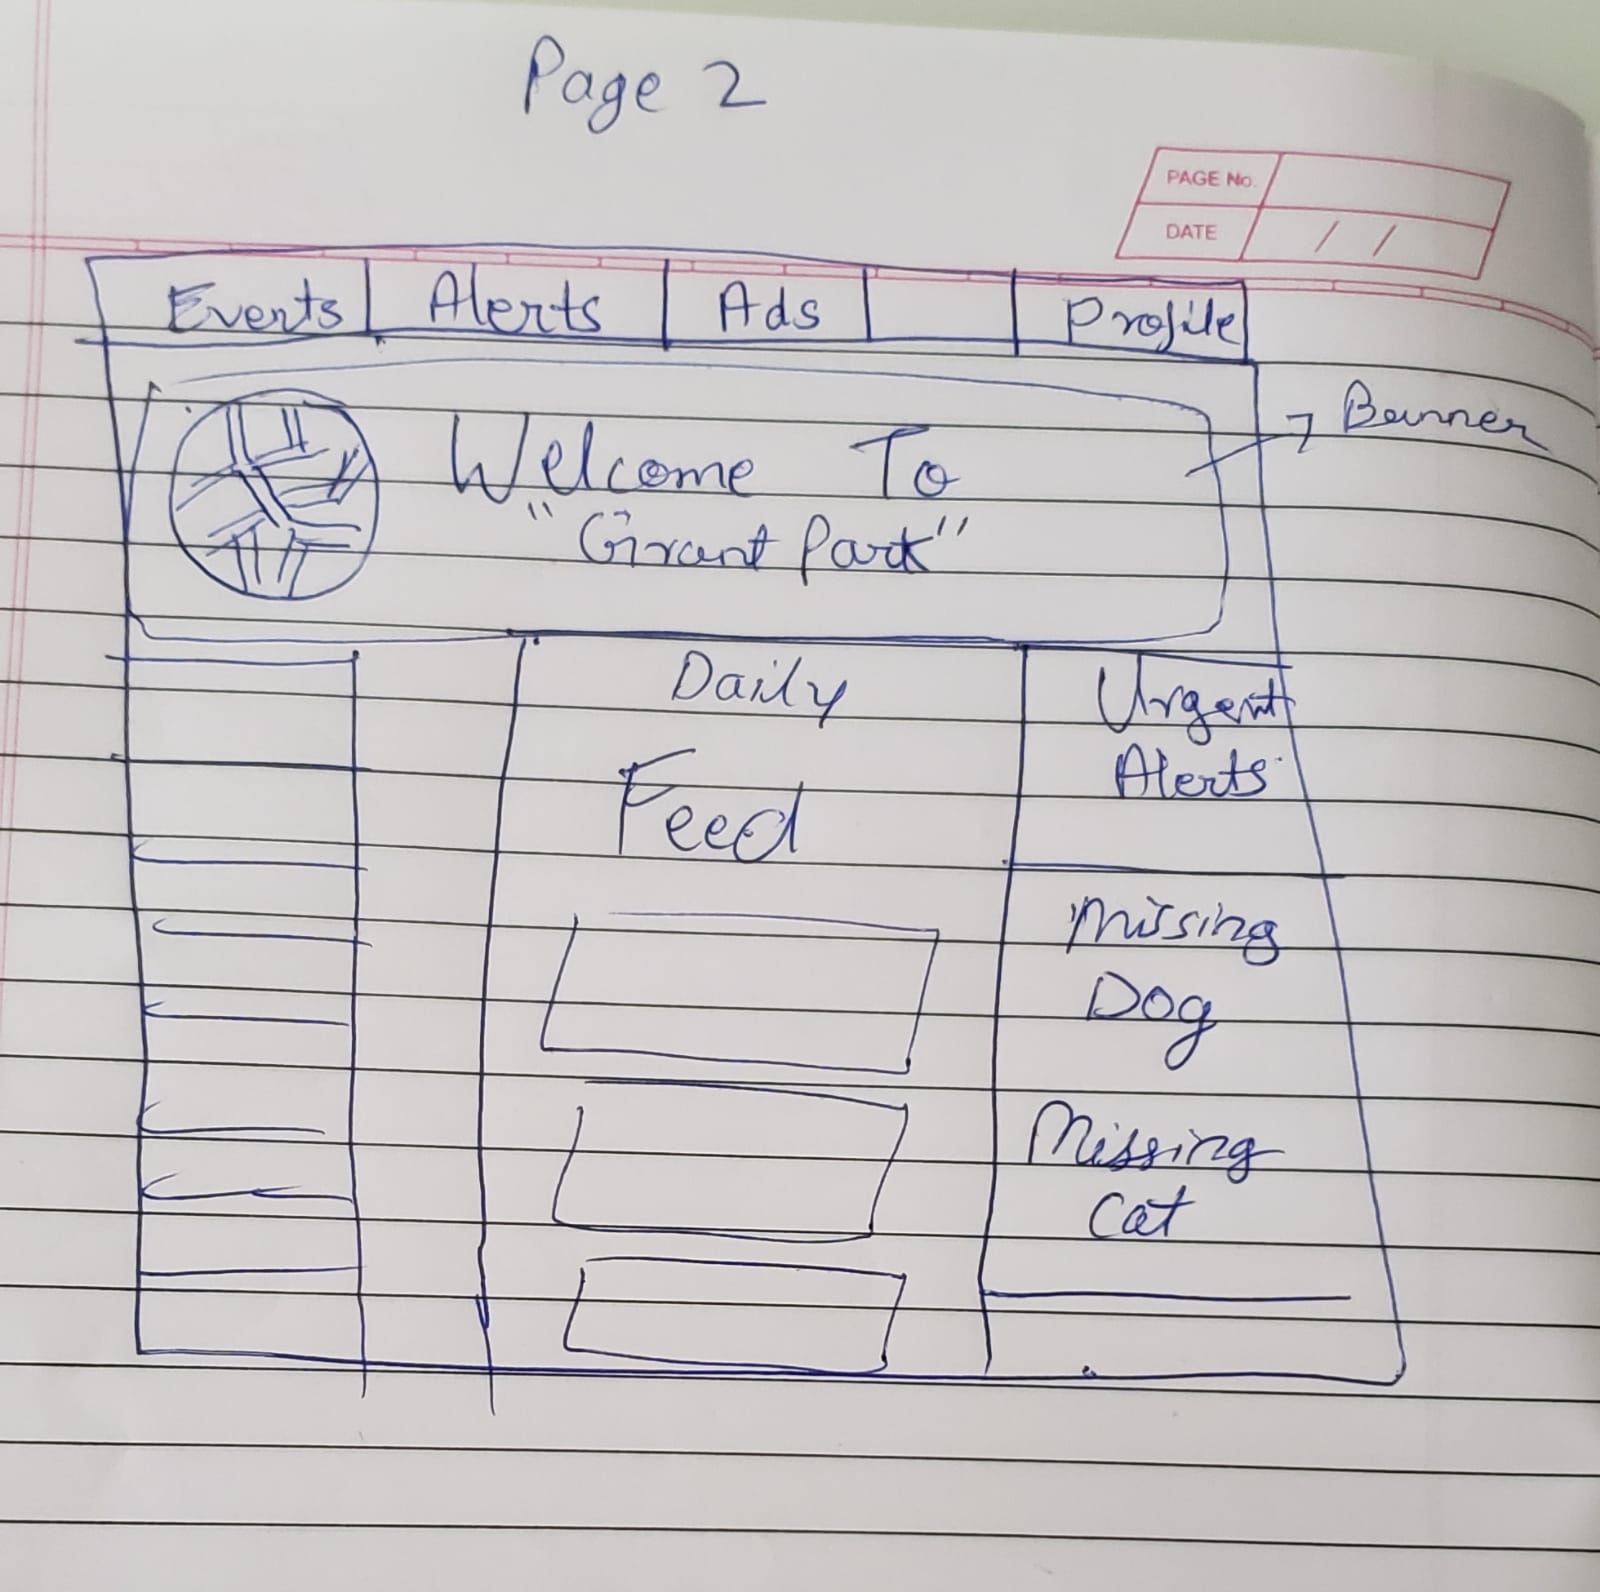 Page 2
PAGE No.
DATE / /
Events Alerts Ads Profile
Banner
Welcome To
"Grant Park"
Daily
Feed
Urgent
Alerts
Missing
Dog
Missing
Cat